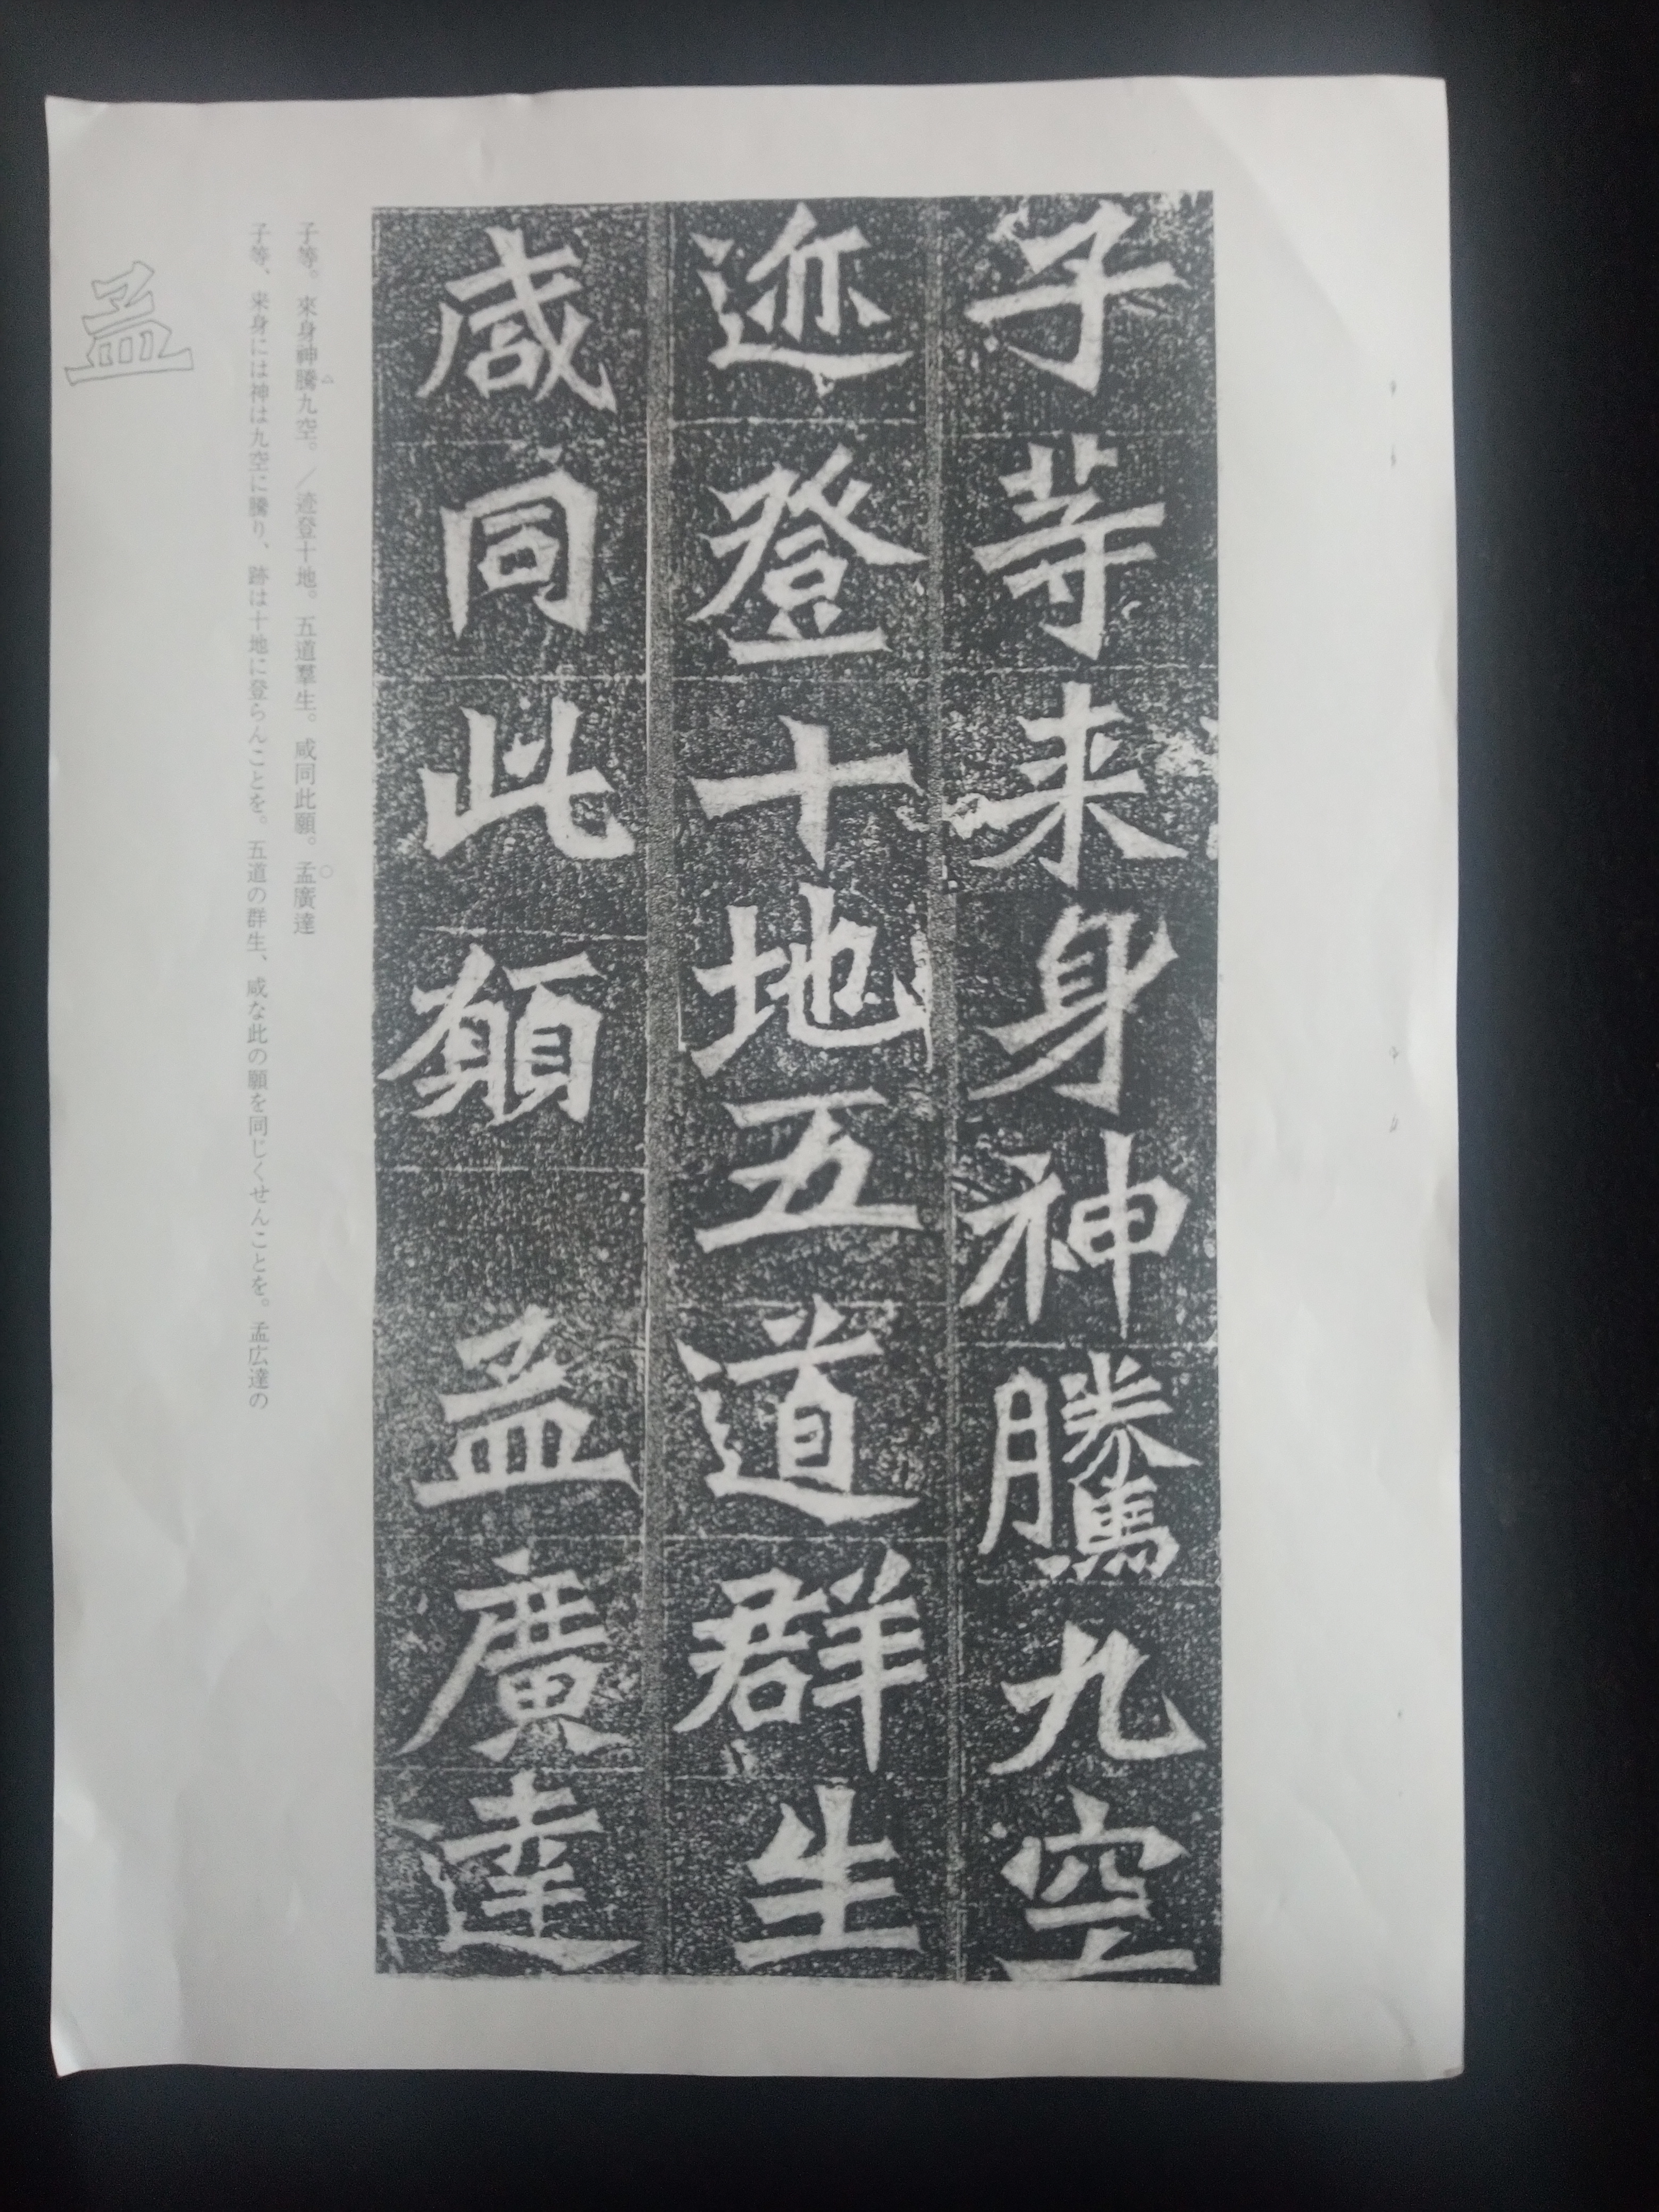 子等来身神騰九空
迹登十地五道群生
咸同此願　孟廣達
子等。來身神騰九空。／迹登十地。五道羣生。咸同此願。孟廣達
子等、来身には神は九空に騰り、跡は十地に登らんことを。五道の群生、咸な此の願を同じくせんことを。孟広達の
孟